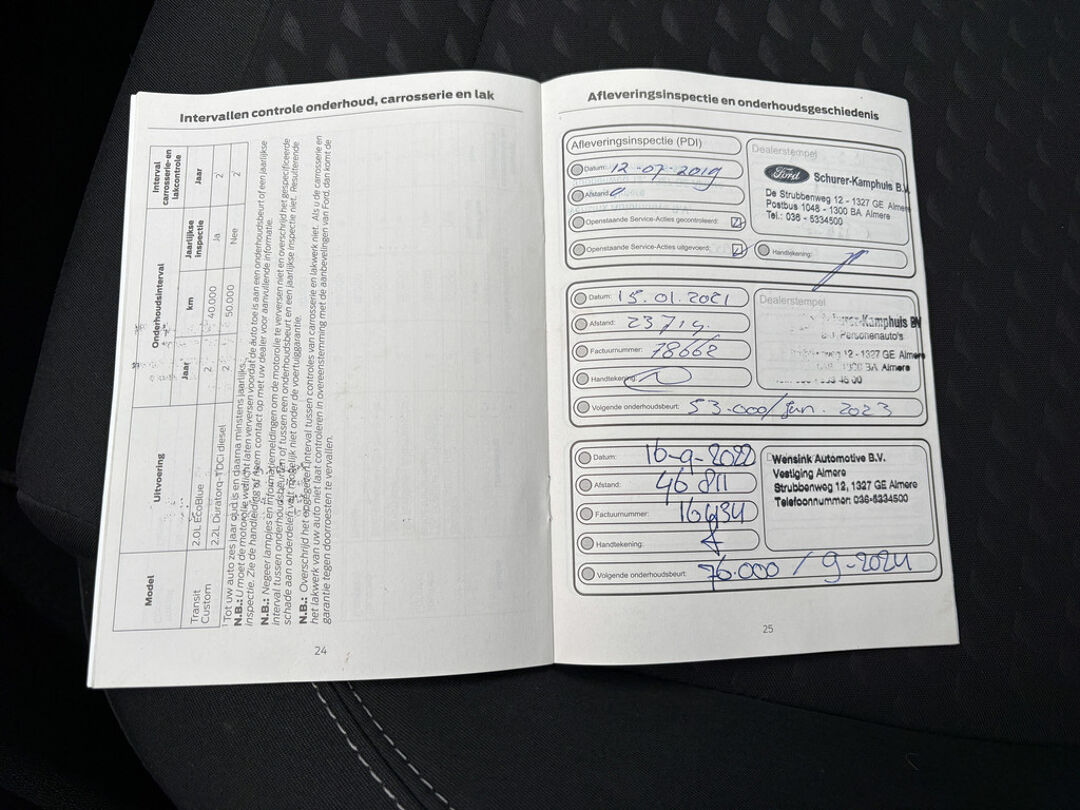 Intervallen controle onderhoud, carrosserie en lak
Model
Uitvoering
Onderhoudsinterval
Interval carrosserie-en lakcontrole
Jaar
km
Jaarlijkse inspectie
Jaar
Transit Custom
2.0L EcoBlue
2
40.000
Ja
2
2.2L Duratorq-TDCi diesel
2
50.000
Nee
2
¹ Tot uw auto zes jaar oud is en daarna minstens jaarlijks.
N.B.: U moet de motorolie wellicht laten verversen voordat de auto toe is aan een onderhoudsbeurt of een jaarlijkse
inspectie. Zie de handleiding of neem contact op met uw dealer voor aanvullende informatie.
N.B.: Negeer lampjes en informatiemeldingen om de motorolie te verversen niet en overschrijd het gespecificeerde
interval tussen onderhoudsbeurten of tussen een onderhoudsbeurt en een jaarlijkse inspectie niet. Resulterende
schade aan onderdelen valt mogelijk niet onder de voertuiggarantie.
N.B.: Overschrijd het opgegeven interval tussen controles van carrosserie en lakwerk niet. Als u de carrosserie en
het lakwerk van uw auto niet laat controleren in overeenstemming met de aanbevelingen van Ford, dan komt de
garantie tegen doorroesten te vervallen.
24
Afleveringsinspectie en onderhoudsgeschiedenis
Afleveringsinspectie (PDI)
Datum: 12-07-2019
Afstand: 0
Openstaande Service-Acties gecontroleerd:
Openstaande Service-Acties uitgevoerd:
Dealerstempel
Ford Schurer-Kamphuis B.V.
De Strubbenweg 12 - 1327 GE Almere
Postbus 1048 - 1300 BA Almere
Tel.: 036 - 5334500
Handtekening:
Datum: 15.01.2021
Afstand: 23719
Factuurnummer: 78662
Handtekening:
Dealerstempel
Schurer-Kamphuis BV
Personenauto's
12 - 1327 GE Almere
BA Almere
Volgende onderhoudsbeurt: 53.000/jan. 2023
Datum: 16-9-2022
Afstand: 46811
Factuurnummer: 16434
Handtekening:
Wensink Automotive B.V.
Vestiging Almere
Strubbenweg 12, 1327 GE Almere
Telefoonnummer: 036-5334500
Volgende onderhoudsbeurt: 76.000 / 9-2024
25